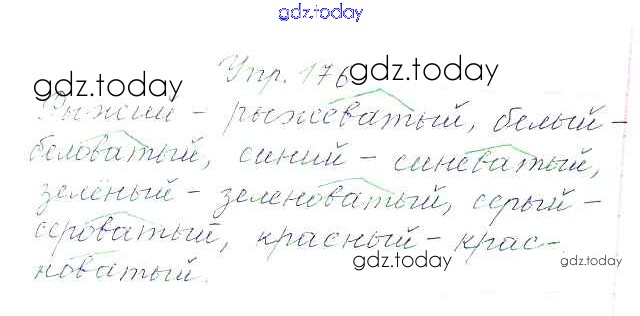 gdz.today
Упр. 176 gdz.today
gdz.today
Рыжий - рыжеватый, белый -
беловатый, синий - синеватый,
зелёный - зеленоватый, серый -
сероватый, красный - крас-
новатый.
gdz.today
gdz.today